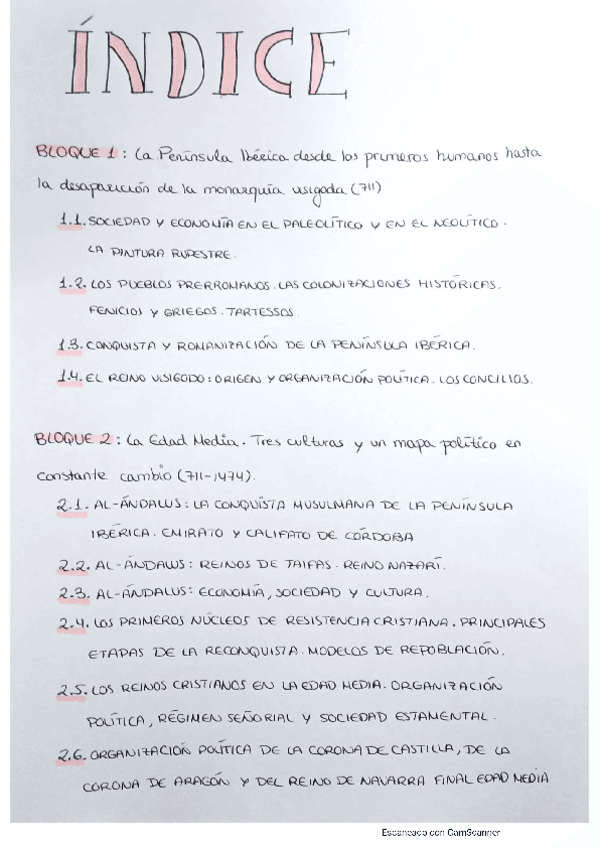 ÍNDICE
BLOQUE 1: La Península Ibérica desde los primeros humanos hasta
la desaparición de la monarquía visigoda (711)
1.1. SOCIEDAD Y ECONOMÍA EN EL PALEOLÍTICO Y EN EL NEOLÍTICO.
LA PINTURA RUPESTRE.
1.2. LOS PUEBLOS PRERROMANOS. LAS COLONIZACIONES HISTÓRICAS.
FENICIOS Y GRIEGOS. TARTESSOS.
1.3. CONQUISTA Y ROMANIZACIÓN DE LA PENÍNSULA IBÉRICA.
1.4. EL REINO VISIGODO: ORIGEN Y ORGANIZACIÓN POLÍTICA. LOS CONCILIOS.
BLOQUE 2: La Edad Media. Tres culturas y un mapa político en
constante cambio (711-1474).
2.1. AL-ÁNDALUS: LA CONQUISTA MUSULMANA DE LA PENÍNSULA
IBÉRICA. EMIRATO Y CALIFATO DE CÓRDOBA
2.2. AL-ÁNDALUS: REINOS DE TAIFAS. REINO NAZARÍ.
2.3. AL-ÁNDALUS: ECONOMÍA, SOCIEDAD Y CULTURA.
2.4. LOS PRIMEROS NÚCLEOS DE RESISTENCIA CRISTIANA. PRINCIPALES
ETAPAS DE LA RECONQUISTA. MODELOS DE REPOBLACIÓN.
2.5. LOS REINOS CRISTIANOS EN LA EDAD MEDIA. ORGANIZACIÓN
POLÍTICA, RÉGIMEN SEÑORIAL Y SOCIEDAD ESTAMENTAL.
2.6. ORGANIZACIÓN POLÍTICA DE LA CORONA DE CASTILLA, DE LA
CORONA DE ARAGÓN Y DEL REINO DE NAVARRA FINAL EDAD MEDIA
Escaneado con CamScanner